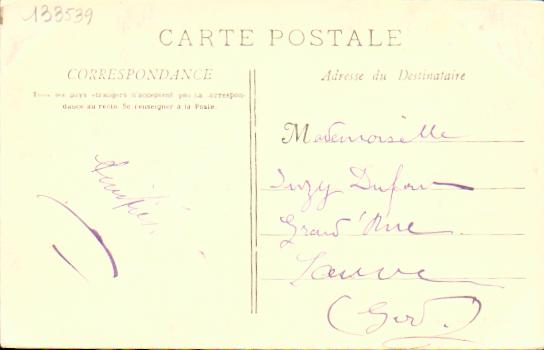 133539
CARTE POSTALE
CORRESPONDANCE
Tous les pays étrangers n'acceptent pas la correspon-
dance au recto. Se renseigner à la Poste.
Adresse du Destinataire
Amitiés.
Mademoiselle
Suzy Dufour
Grand'Rue
Sauve
(Gard.)